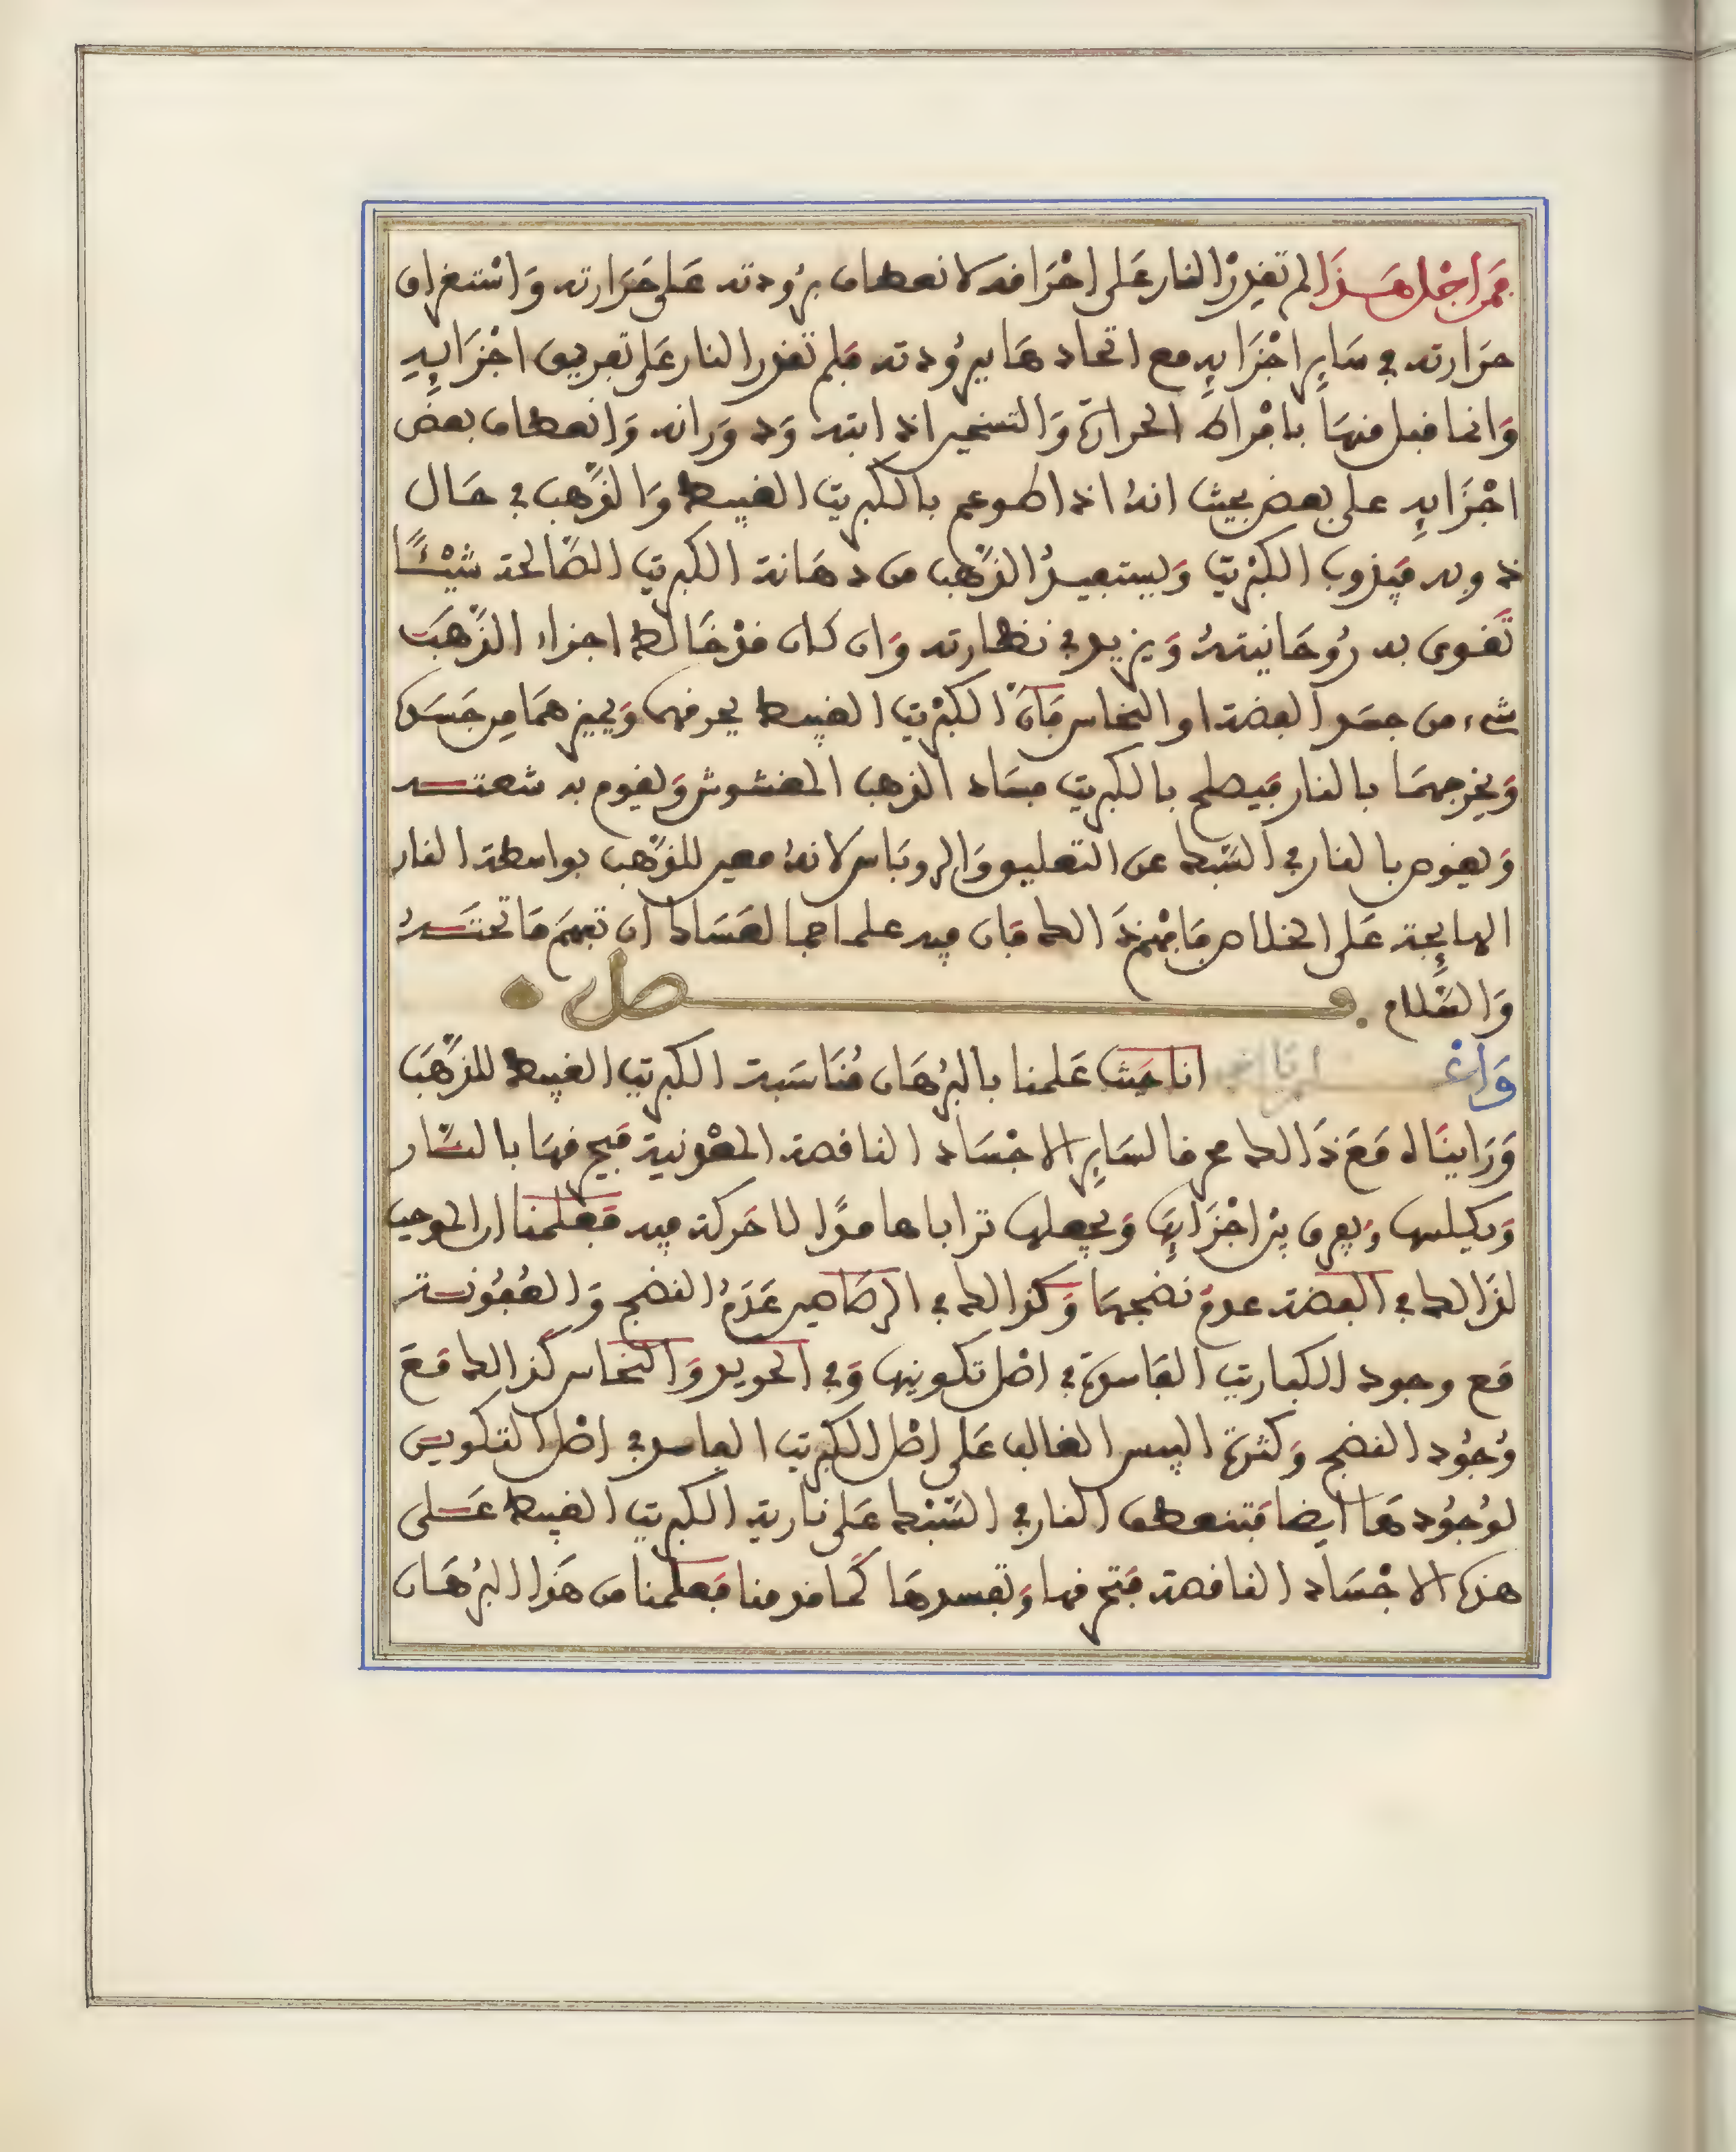 فمن اجل هذا لم تقدر النار على احراقه لانعطاف برودته على حرارته واستغراق
حرارته في ساير اجزايه مع اتحادها ببرودته فلم تقدر النار على تفريق اجزايه
وانما قبل منها بافراط الحرارة والتسخير اذابته ودورانه وانعطاف بعض
اجزايه على بعض بحيث انه اذا طوعم بالكبريت القبيط والذهب في حال
ذوبه فيذوب الكبريت ويستفيد الذهب من دهانة الكبريت الصالحة شيئًا
تقوى به روحانيته ويزيد في نظارته وان كان قد خالط اجزاء الذهب
شيء من جسد الفضة او النحاس فان الكبريت القبيط يحرقهما ويميزهما من جسده
ويخرجهما بالنار فيصلح بالكبريت فساد الذهب المغشوش ويقوم به شعته
ويغوص بالنار في الشبط عن التعليق والروباس لانه معين للذهب بواسطة النار
الهايجة على الخلاص فافهم ذالك فان فيه علما جما لعساك ان تفهم ما تحته
والسلام فصل
واعلم يا اخي انا حيث علمنا بالبرهان مناسبة الكبريت القبيط للذهب
وراينا له مع ذالك محرقا لساير الاجساد الناقصة المعدنية فيحرقها بالنار
ويكلسها ويفرق بين اجزايها ويجعلها ترابا هامدًا لا حركة فيه فعلمنا ان الموجب
لذالك في الفضة عدم نضجها وكذالك في الرصاصين عدم النضج والعفونة
مع وجود الكباريت الفاسدة في اصل تكوينها وفي الحديد والنحاس كذالك مع
وجود النضج وكثرة اليبس الغالب على اصل الكبريت الفاسد في اصل التكوين
لوجودها ايضا فتنعطف النار في الشبط على نارية الكبريت القبيط على
هذه الاجساد الناقصة فتحرقها وتفسدها كما قدمنا فعلمنا من هذا البرهان